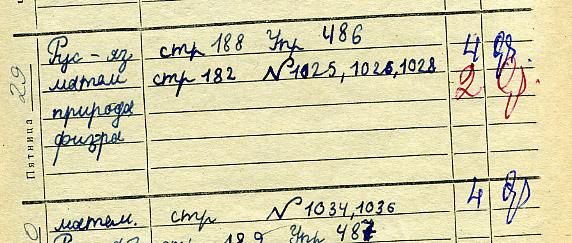 Пятница 29
Рус-яз стр 188 Упр 486 4
матем стр 182 №1025, 1026, 1028 2
природа
физра
матем. стр №1034, 1036 4
стр 189 Упр 487